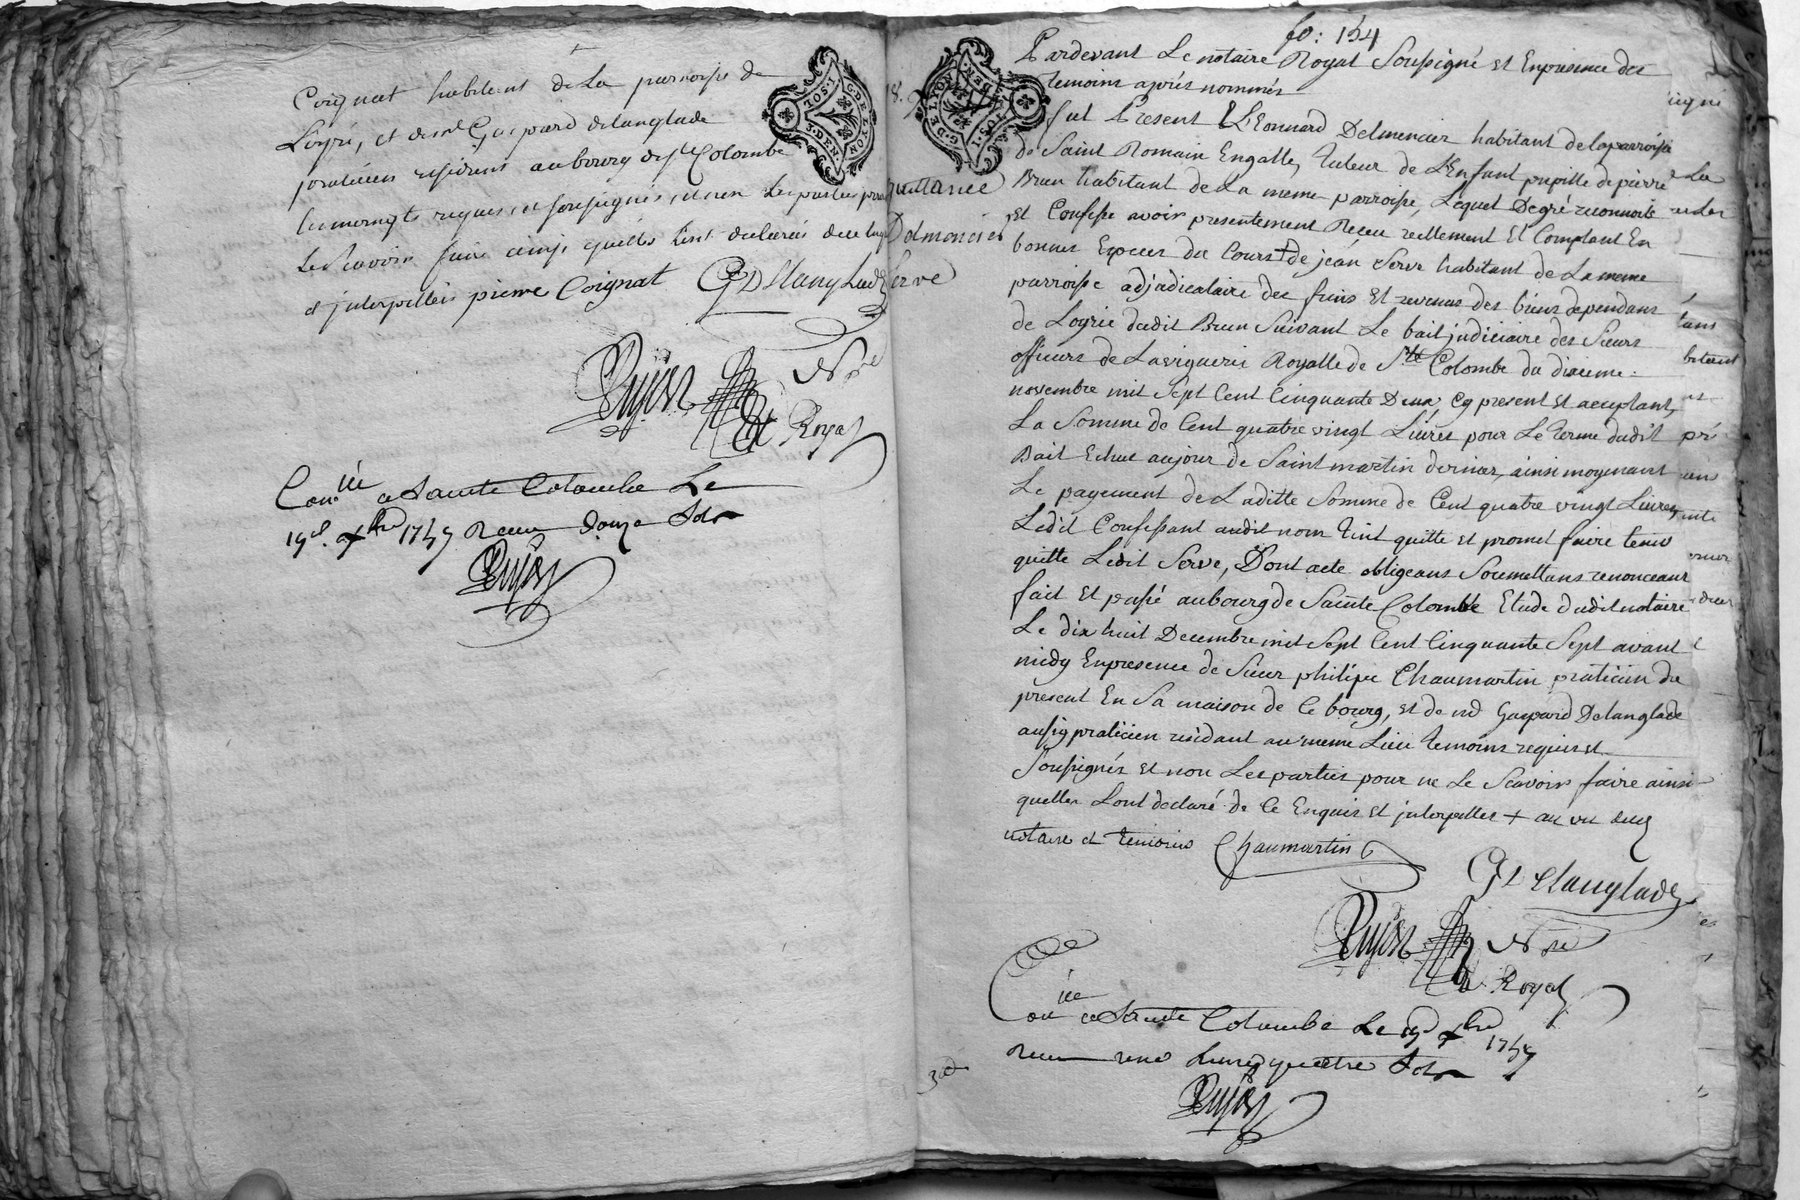 Coignat habitant de La parroisse de
Loyré, et de md Gaspard delanglade
praticien résident au bourg de Ste Colombe
temoingts requis et soussignés, et non les parties pour
Le Scavoir faire ainsi quelles lont declarés de ce enquis
et jnterpellés pierre Coignat GDelanglade
Pujos Nre
Royal
Conlle a Sainte Colombe Le
19e Xbre 1757 Receu douze Sols
Pujos
G. DE LYON
5. DEN.
fo: 154
Pardevant Le notaire Royal Soussigné et Enpresence des
temoins aprés nommés
fut Present Leonnard Delmencier habitant de la parroisse
de Saint Romain Engalle, tuteur de LEnfant pupille de pierre
Brun habitant de La meme parroisse, Lequel De gré reconnoit
et Confesse avoir presentement Receu reellement Et Comptant En
bonnes Especes du Cours + de jean Serve habitant de La meme
parroisse adjudicataire des fruis Et revenus des biens dependans
de Loyrie dudit Brun Suivant Le bail judiciaire des Sieurs
officiers de Laviguerie Royalle de Ste Colombe du dixieme
novembre mil Sept Cent Cinquante Deux Cy present et acceptant,
La Somme de Cent quatre vingt Livres pour Le terme dudit
Bail Echue au jour de Saint martin dernier, ainsi moyenant
Le payement de Laditte Somme de Cent quatre vingt Livres
Ledit Confessant audit nom tint quitte et promet faire tenir
quitte Ledit Serve, Dont acte obligeans Soumettans renonceans
fait Et passé au bourg de Sainte Colombe Etude dudit notaire
Le dix huit Decembre mil Sept Cent Cinquante Sept avant
midy Enpresence de Sieur philipe Chaumartin praticien du
present En Sa maison de Ce bourg, et de md Gaspard Delanglade
aussy praticien residant au meme Lieu temoins requis et
Soussignés et non Les parties pour ne Le Scavoir faire ainsi
quelles Lont declaré de Ce Enquis et jnterpelles + au vu desd
notaire et temoins Chaumartin
GDelanglade
Pujos Nre
Royal
Conlle a Sainte Colombe Le 19e Xbre 1757
Receu une Livre quatre Sols
Pujos
quittance
Delmencier
Serve